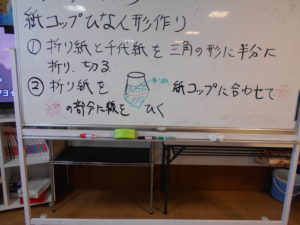 紙コップひな人形作り
① 折り紙と千代紙を三角の形に半分に
折り、切る
② 折り紙を 紙コップに合わせて
の部分に線をひく